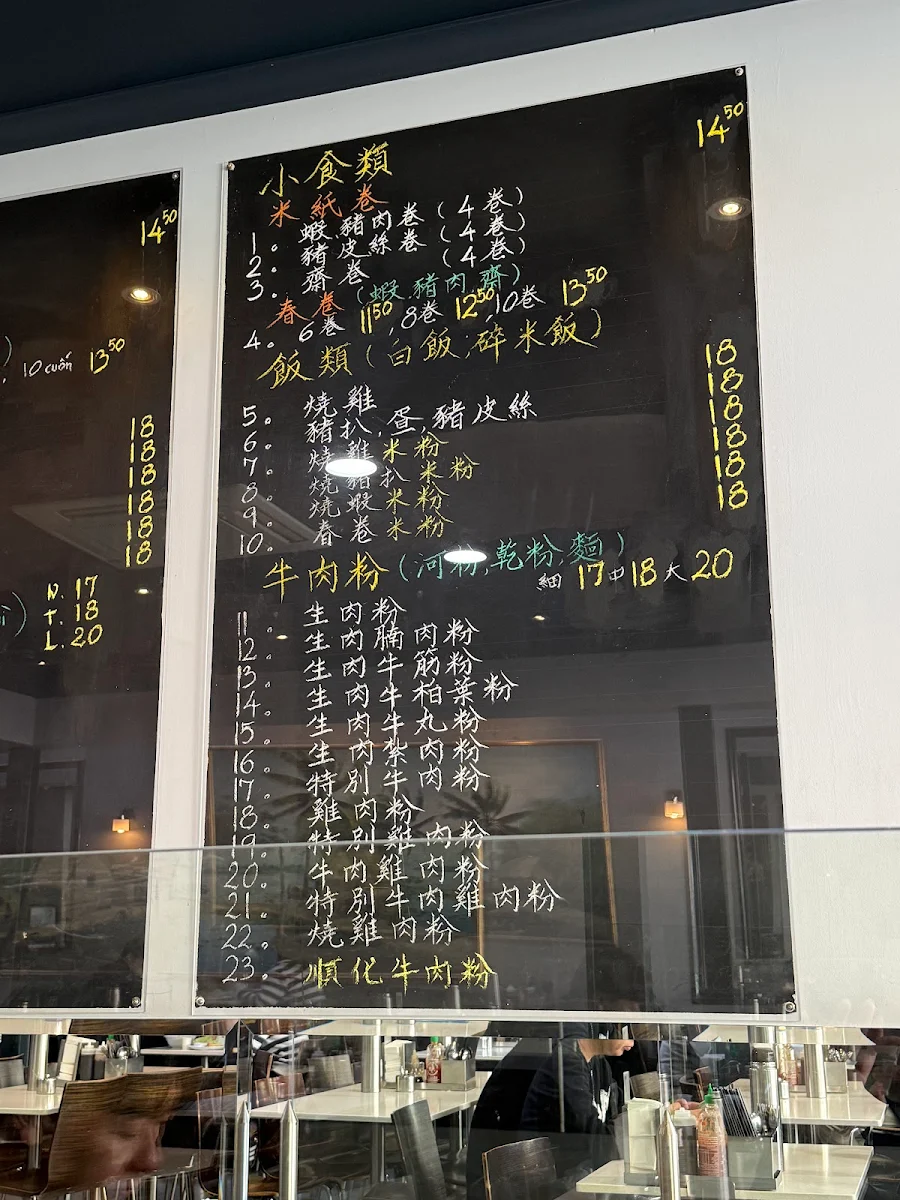 14⁵⁰
10 cuốn 13⁵⁰
18
18
18
18
18
18
N. 17
T. 18
L. 20
小食類 14⁵⁰
米紙卷
1. 蝦豬肉卷 (4卷)
2. 豬皮絲卷 (4卷)
3. 齋卷 (4卷)
春卷 (蝦,豬肉,齋)
4. 6卷 11⁵⁰, 8卷 12⁵⁰, 10卷 13⁵⁰
飯類 (白飯,碎米飯)
5. 燒雞 18
6. 豬扒,昼,豬皮絲 18
7. 燒雞米粉 18
8. 燒豬扒米粉 18
9. 燒蝦米粉 18
10. 春卷米粉 18
牛肉粉 (河粉,乾粉,麵)
細 17 中 18 大 20
11. 生肉粉
12. 生肉腩肉粉
13. 生肉牛筋粉
14. 生肉牛柏葉粉
15. 生肉牛丸粉
16. 生肉紮肉粉
17. 特別牛肉粉
18. 雞肉粉
19. 特別雞肉粉
20. 牛肉雞肉粉
21. 特別牛肉雞肉粉
22. 燒雞肉粉
23. 順化牛肉粉